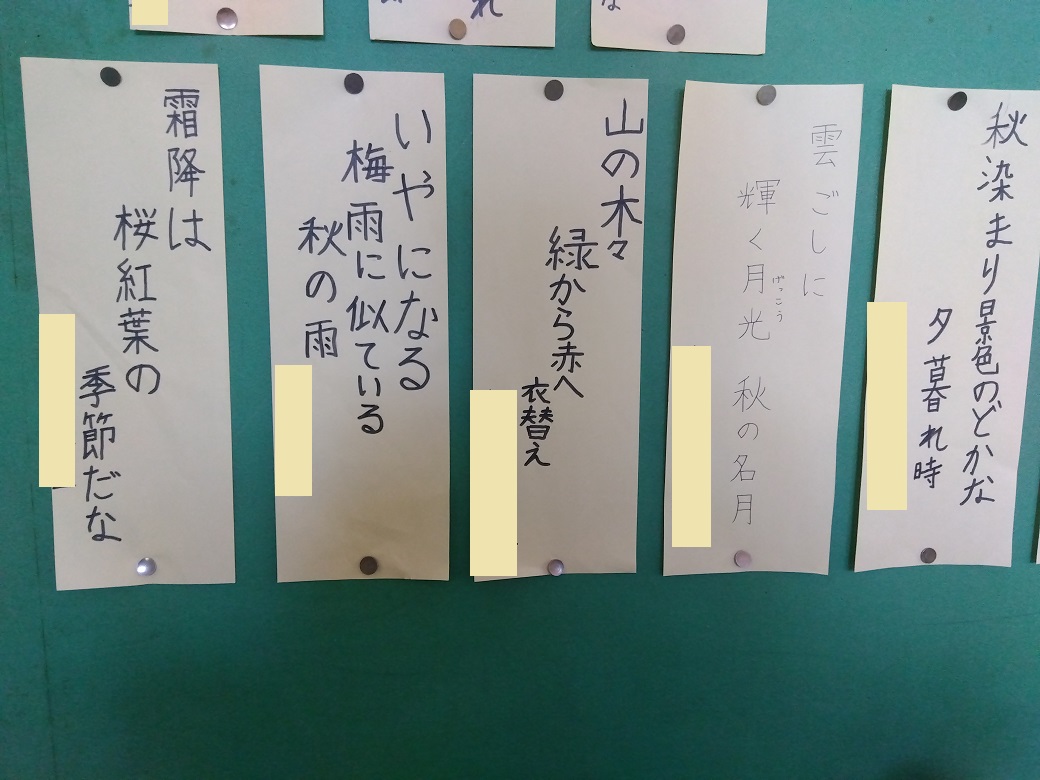 秋染まり景色のどかな
夕暮れ時
雲ごしに
輝く月光 秋の名月
げっこう
山の木々
緑から赤へ
衣替え
いやになる
梅雨に似ている
秋の雨
霜降は
桜紅葉の
季節だな